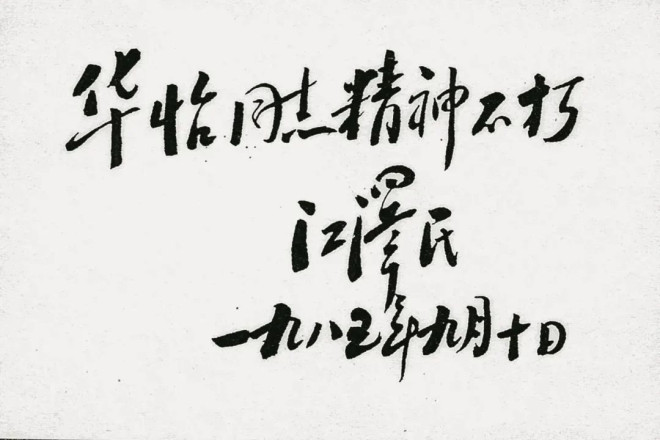 华怡同志精神不朽
江澤民
一九八五年九月十日